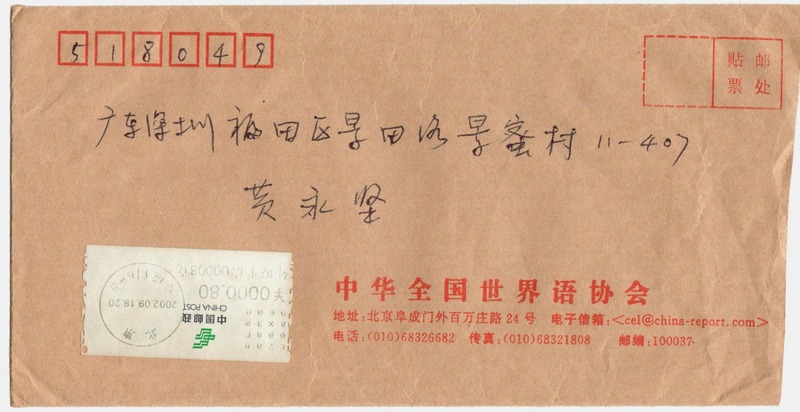 518049
贴邮
票处
广东深圳福田区景田路景蜜村11-407
黄永坚
中华全国世界语协会
地址:北京阜成门外百万庄路24号 电子信箱:<cel@china-report.com>
电话:(010)68326682 传真:(010)68321808 邮编:100037
中国邮政
CHINA POST
0000.80
2002.09.18.20
北京